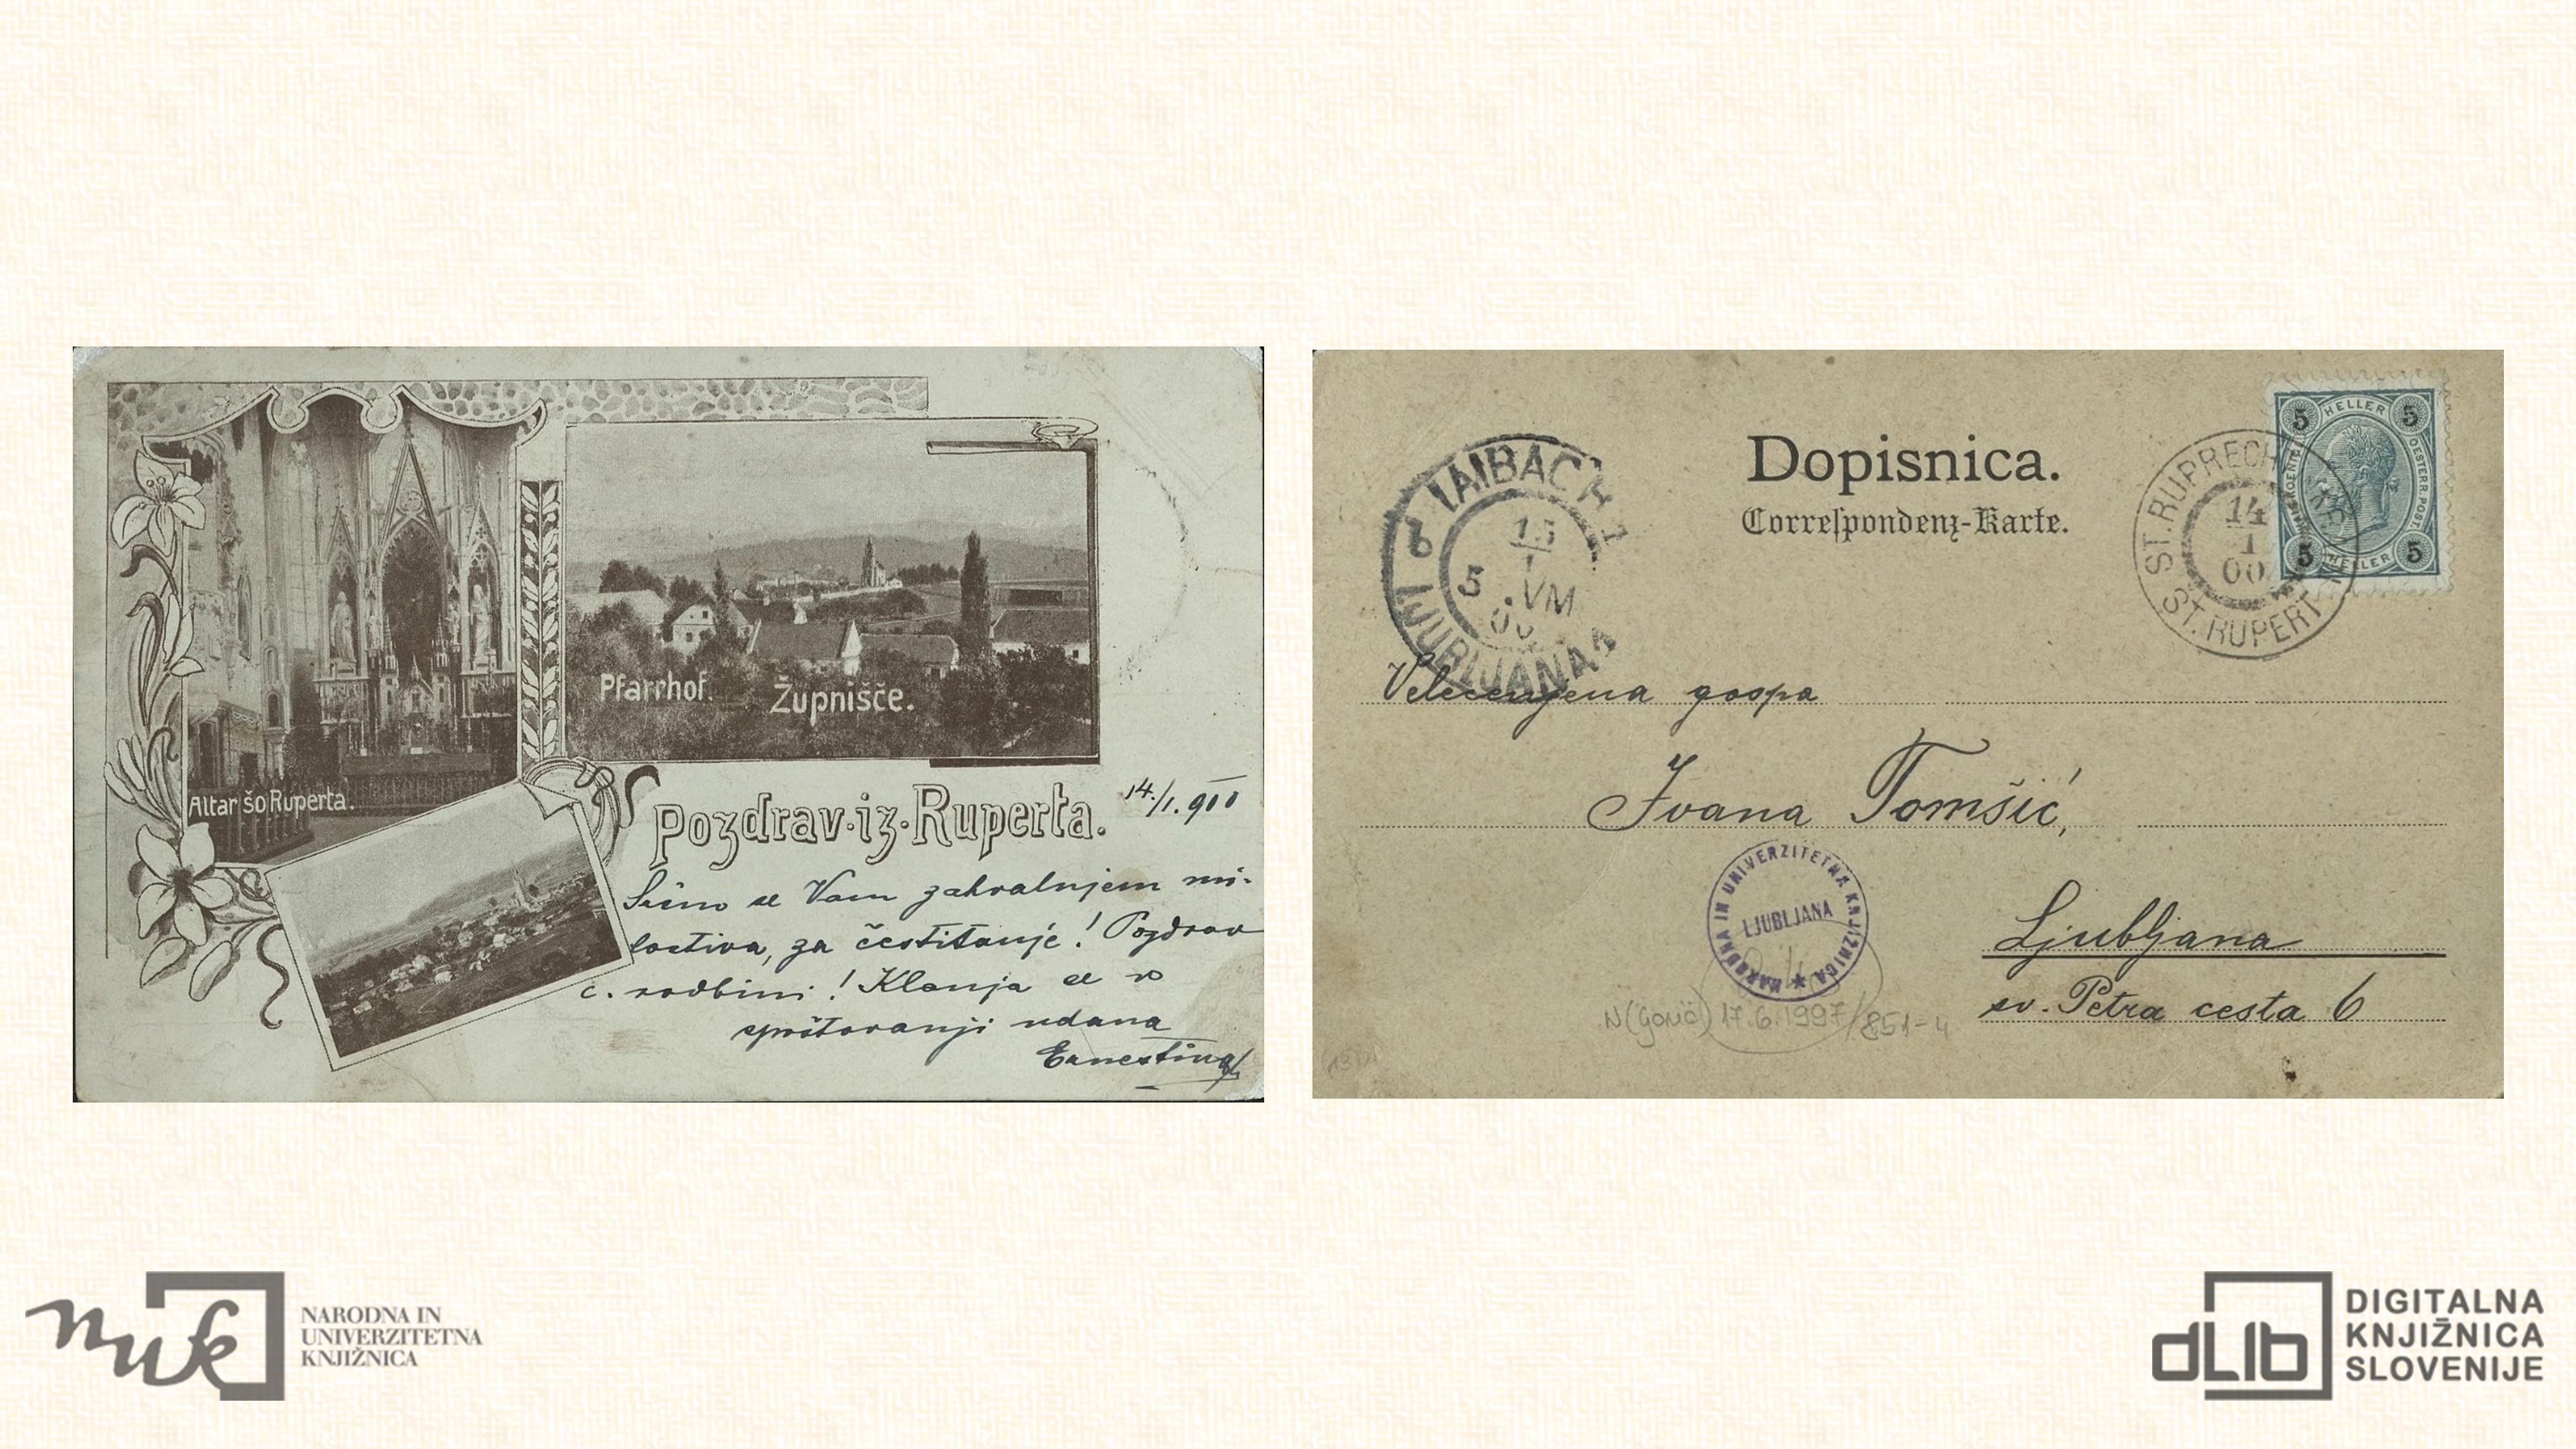 Altar šo Ruperta.
Pfarrhof. Župnišče.
Pozdrav iz Ruperta.
14./1. 900
se Vam zahvalujem mi-
lostiva, za čestitanje! Pozdrav
c. rodbini! Klanja se v
spoštovanji udana
Ernestina
Dopisnica.
Correſpondenz-Karte.
6 LAIBACH 1
15
1
5 .VM
00
LJUBLJANA 1
ST. RUPRECHT
14
1
00
ST. RUPERT
5 HELLER 5
OESTERR. POST.
5 HELLER 5
Velecenjena gospa
Ivana Tomšić,
Ljubljana
sv. Petra cesta 6
NARODNA IN UNIVERZITETNA KNJIŽNICA
LJUBLJANA
17.6.1997/851-4
nuk
NARODNA IN
UNIVERZITETNA
KNJIŽNICA
dLib
DIGITALNA
KNJIŽNICA
SLOVENIJE